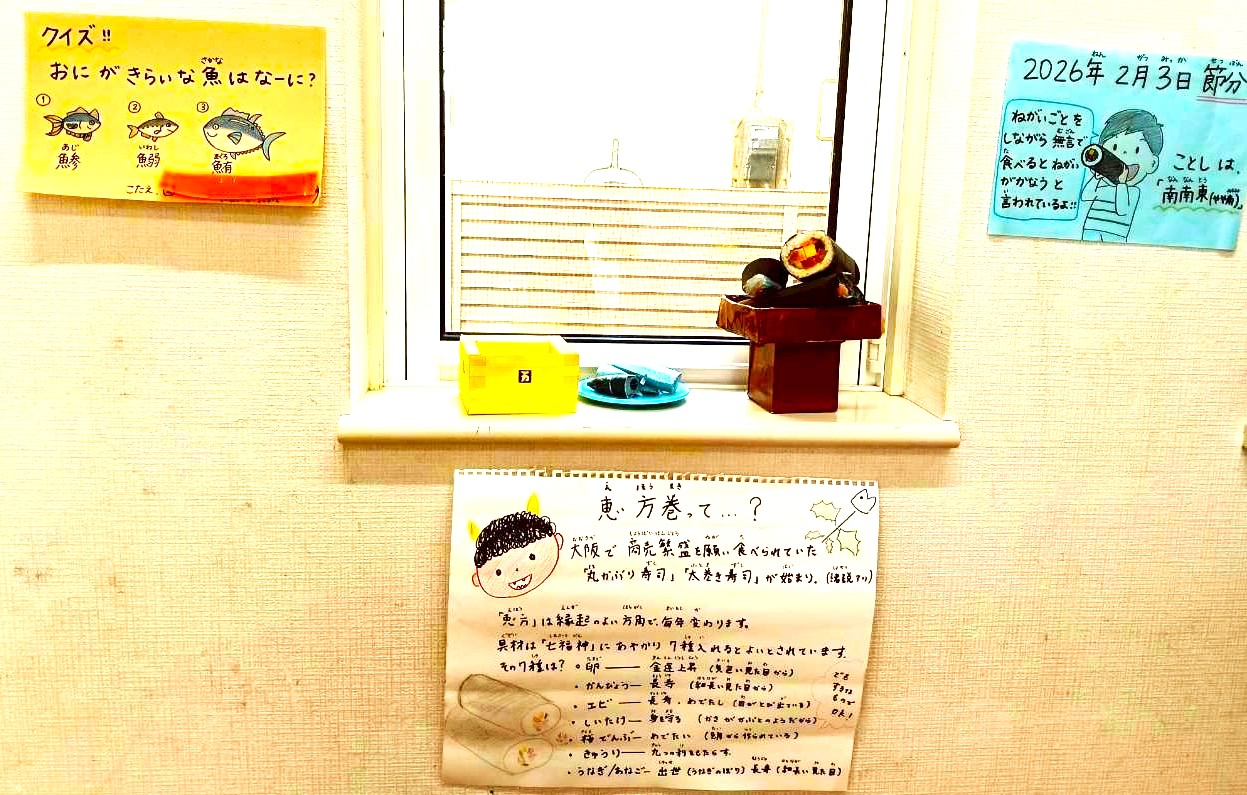 クイズ!!
おにがきらいな魚はなーに?
① ② ③
あじ いわし まぐろ
鯵 鰯 鮪
こたえ
2026年 2月3日 節分
ねがいごとを
しながら 無言で
食べると ねがい
がかなうと
言われているよ!!
ことしは、
「南南東
万
恵方巻って…?
大阪で 商売繁盛を願い食べられていた
「丸かぶり寿司」「太巻き寿司」が始まり。(諸説アリ)
「恵方」は縁起のよい方角で、毎年変わります。
具材は「七福神」にあやかり 7種入れるとよいとされています。
その7種は? ・卵 ― 金運上昇 (黄色い見た目から)
・かんぴょう ― 長寿 (細長い見た目から)
・エビ ― 長寿・めでたし
・しいたけ ― 身を守る (かさがかぶとのようだから)
・桜でんぶ ― めでたい (鯛から作られている)
・きゅうり ― 九つの利をもたらす。
・うなぎ/あなご ― 出世 (うなぎのぼり) 長寿 (細長い見た目)